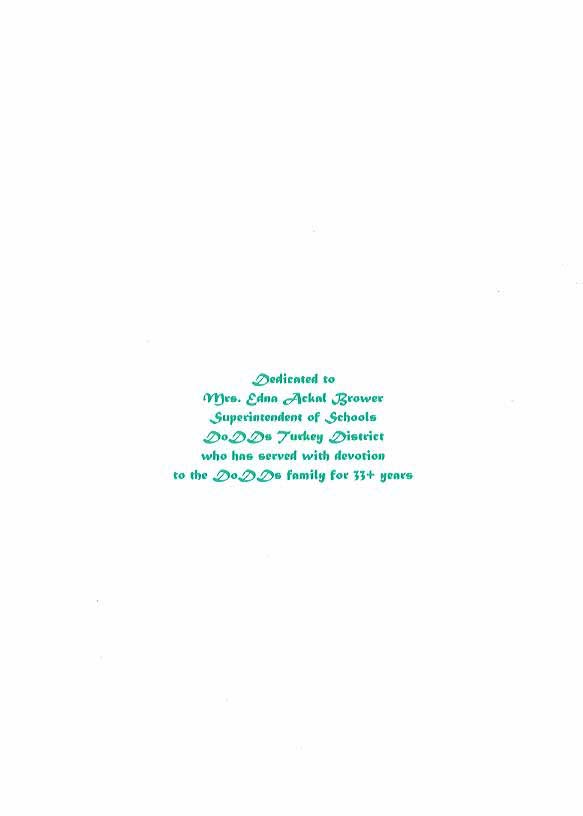 Dedicated to
Mrs. Edna Ackal Brower
Superintendent of Schools
DoDDs Turkey District
who has served with devotion
to the DoDDs family for 33+ years